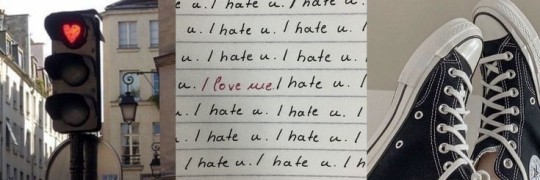 e u. I hate u. I hate u.
u. I hate u. I hate u.
I hate u. I hate u. I
u. I love me. I hate u.
I hate u. I hate u. I
u. I hate u. I hate u.
I hate u. I hate u. I h